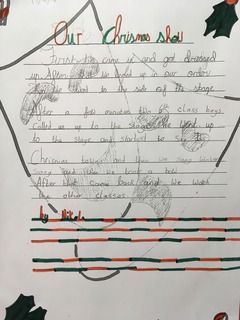 Our Chrismas show
First we came up and got dressed
up. After that we lined up in our orders
we went to the side of the stage
After a few minutes the 6th class boys
Called us up to the stage. We went up
to the stage and started to Sing
Chrismas and then we sang Winter
Song and then we took a bow
After that came back and we watch
the other classes.
by